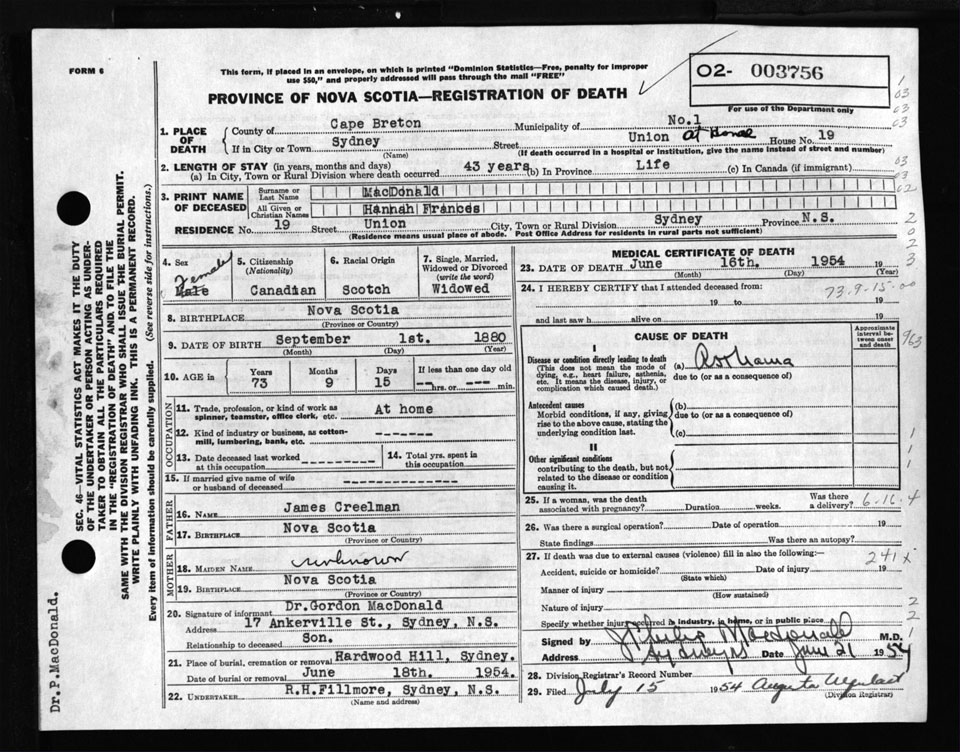 FORM 6
This form, if placed in an envelope, on which is printed "Dominion Statistics—Free, penalty for improper
use $50," and properly addressed will pass through the mail "FREE"
PROVINCE OF NOVA SCOTIA—REGISTRATION OF DEATH
02- 003756
For use of the Department only
1. PLACE OF DEATH County of Cape Breton Municipality of No.1
If in City or Town Sydney Street Union at Home House No. 19
(Name) (If death occurred in a hospital or institution, give the name instead of street and number)
2. LENGTH OF STAY (in years, months and days)
(a) In City, Town or Rural Division where death occurred 43 years (b) In Province Life (c) In Canada (if immigrant)
3. PRINT NAME OF DECEASED Surname or Last Name MacDonald
All Given or Christian Names Hannah Frances
RESIDENCE No. 19 Street Union City, Town or Rural Division Sydney Province N.S.
(Residence means usual place of abode. Post Office Address for residents in rural parts not sufficient)
4. Sex Female Male
5. Citizenship (Nationality) Canadian
6. Racial Origin Scotch
7. Single, Married, Widowed or Divorced (write the word) Widowed
8. BIRTHPLACE Nova Scotia
(Province or Country)
9. DATE OF BIRTH September 1st. 1880
(Month) (Day) (Year)
10. AGE in Years 73 Months 9 Days 15 If less than one day old -- hrs. or -- min.
OCCUPATION
11. Trade, profession, or kind of work as spinner, teamster, office clerk, etc. At home
12. Kind of industry or business, as cotton-mill, lumbering, bank, etc. -------
13. Date deceased last worked at this occupation ---------
14. Total yrs. spent in this occupation
15. If married give name of wife or husband of deceased -------------
FATHER
16. NAME James Creelman
17. BIRTHPLACE Nova Scotia
(Province or Country)
MOTHER
18. MAIDEN NAME unknown
19. BIRTHPLACE Nova Scotia
(Province or Country)
20. Signature of informant Dr.Gordon MacDonald
Address 17 Ankerville St., Sydney, N.S.
Relationship to deceased Son.
21. Place of burial, cremation or removal Hardwood Hill, Sydney.
Date of burial or removal June 18th. 1954.
22. UNDERTAKER R.H.Fillmore, Sydney, N.S.
(Name and address)
MEDICAL CERTIFICATE OF DEATH
23. DATE OF DEATH June 16th. 1954 19
(Month) (Day) (Year)
24. I HEREBY CERTIFY that I attended deceased from:
73.9-15-00
19 to 19
and last saw h alive on 19
CAUSE OF DEATH
Approximate interval between onset and death
I
Disease or condition directly leading to death
(This does not mean the mode of dying, e.g., heart failure, asthenia, etc. It means the disease, injury, or complication which caused death.)
(a) Asthama
due to (or as a consequence of)
Antecedent causes
Morbid conditions, if any, giving rise to the above cause, stating the underlying condition last.
(b)
due to (or as a consequence of)
(c)
II
Other significant conditions
contributing to the death, but not related to the disease or condition causing it.
25. If a woman, was the death associated with pregnancy? Duration weeks. Was there a delivery? 6-16-4
26. Was there a surgical operation? Date of operation 19
State findings Was there an autopsy?
27. If death was due to external causes (violence) fill in also the following:—
241x
Accident, suicide or homicide? Date of injury 19
(State which)
Manner of injury
(How sustained)
Nature of injury
Specify whether injury occurred in industry, in home, or in public place
Signed by J Philip Macdonald M.D.
Address Sydney Date June 21 1954
28. Division Registrar's Record Number
29. Filed July 15 1954 Augusta
(Division Registrar)
SEC. 46—VITAL STATISTICS ACT MAKES IT THE DUTY
OF THE UNDERTAKER OR PERSON ACTING AS UNDER-
TAKER TO OBTAIN ALL THE PARTICULARS REQUIRED
IN THE "REGISTRATION OF DEATH" AND TO FILE THE
SAME WITH THE DIVISION REGISTRAR WHO SHALL ISSUE THE BURIAL PERMIT.
WRITE PLAINLY WITH UNFADING INK. THIS IS A PERMANENT RECORD.
Every item of information should be carefully supplied. (See reverse side for instructions.)
Dr.P.MacDonald.